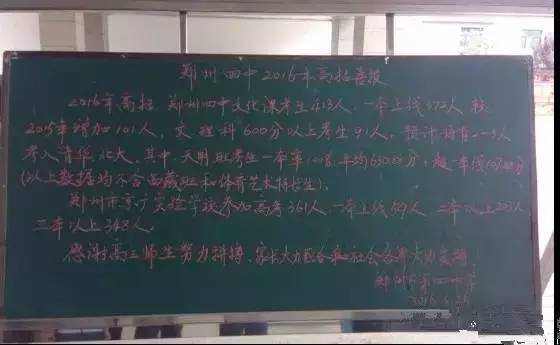 郑州四中2016年高招喜报
2016年高招,郑州四中文化课考生413人,一本上线372人,较
2015年增加101人,文理科600分以上考生91人,预计将有二-3人
考入清华、北大,其中,天明班考生一本率100%,平均630.88分,超一本线107.88分
(以上数据均不含西藏班和体育艺术特长生)。
郑州市京广实验学校参加高考361人,一本上线59人,二本以上203人
三本以上348人。
感谢高三师生努力拼搏、家长大力配合和社会各界大力支持
郑州市第四中学
2016.6.25